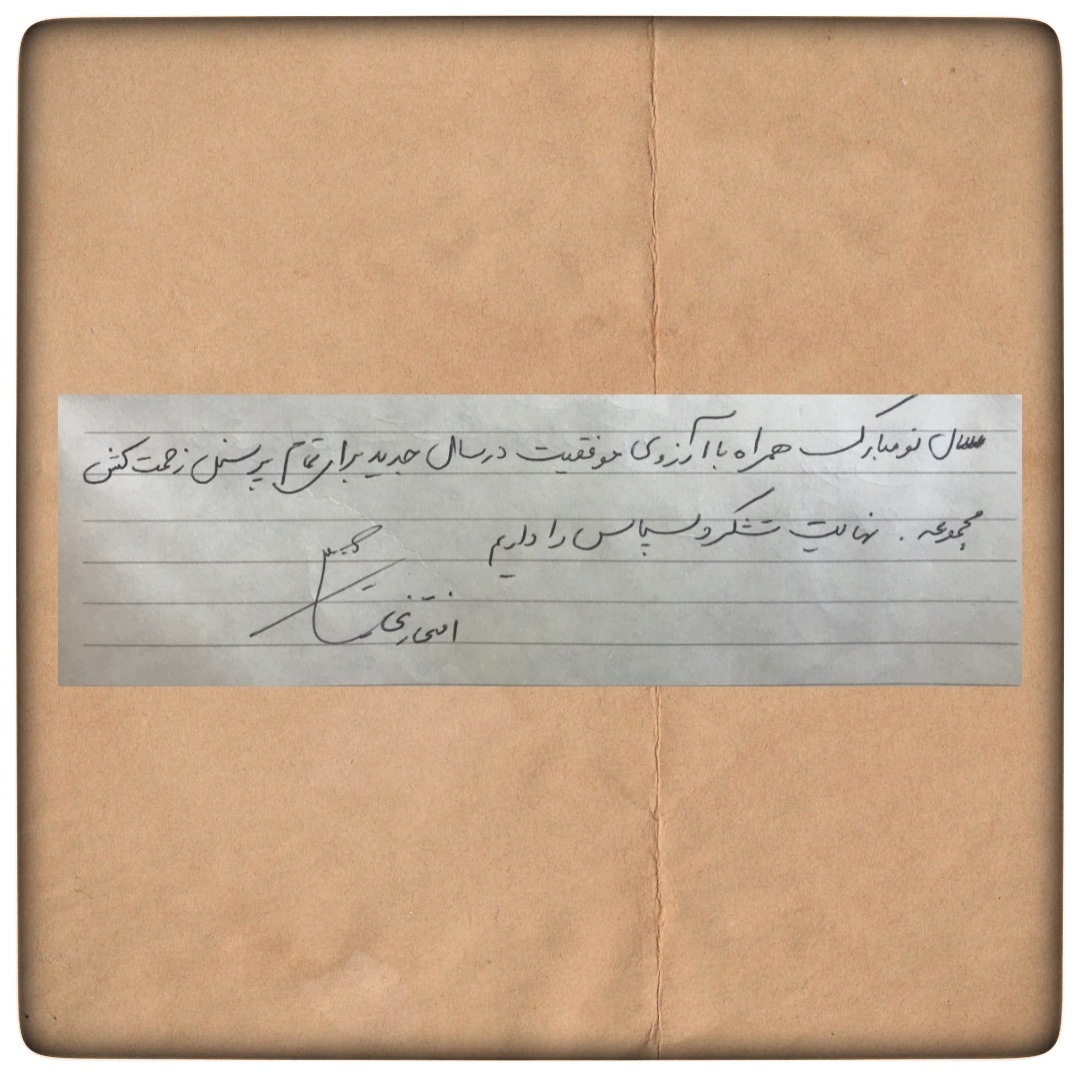 سال نو مبارک همراه با آرزوی موفقیت در سال جدید برای تمام پرسنل زحمت کش
مجموعه . نهایت تشکر و سپاس را داریم
افتخاری